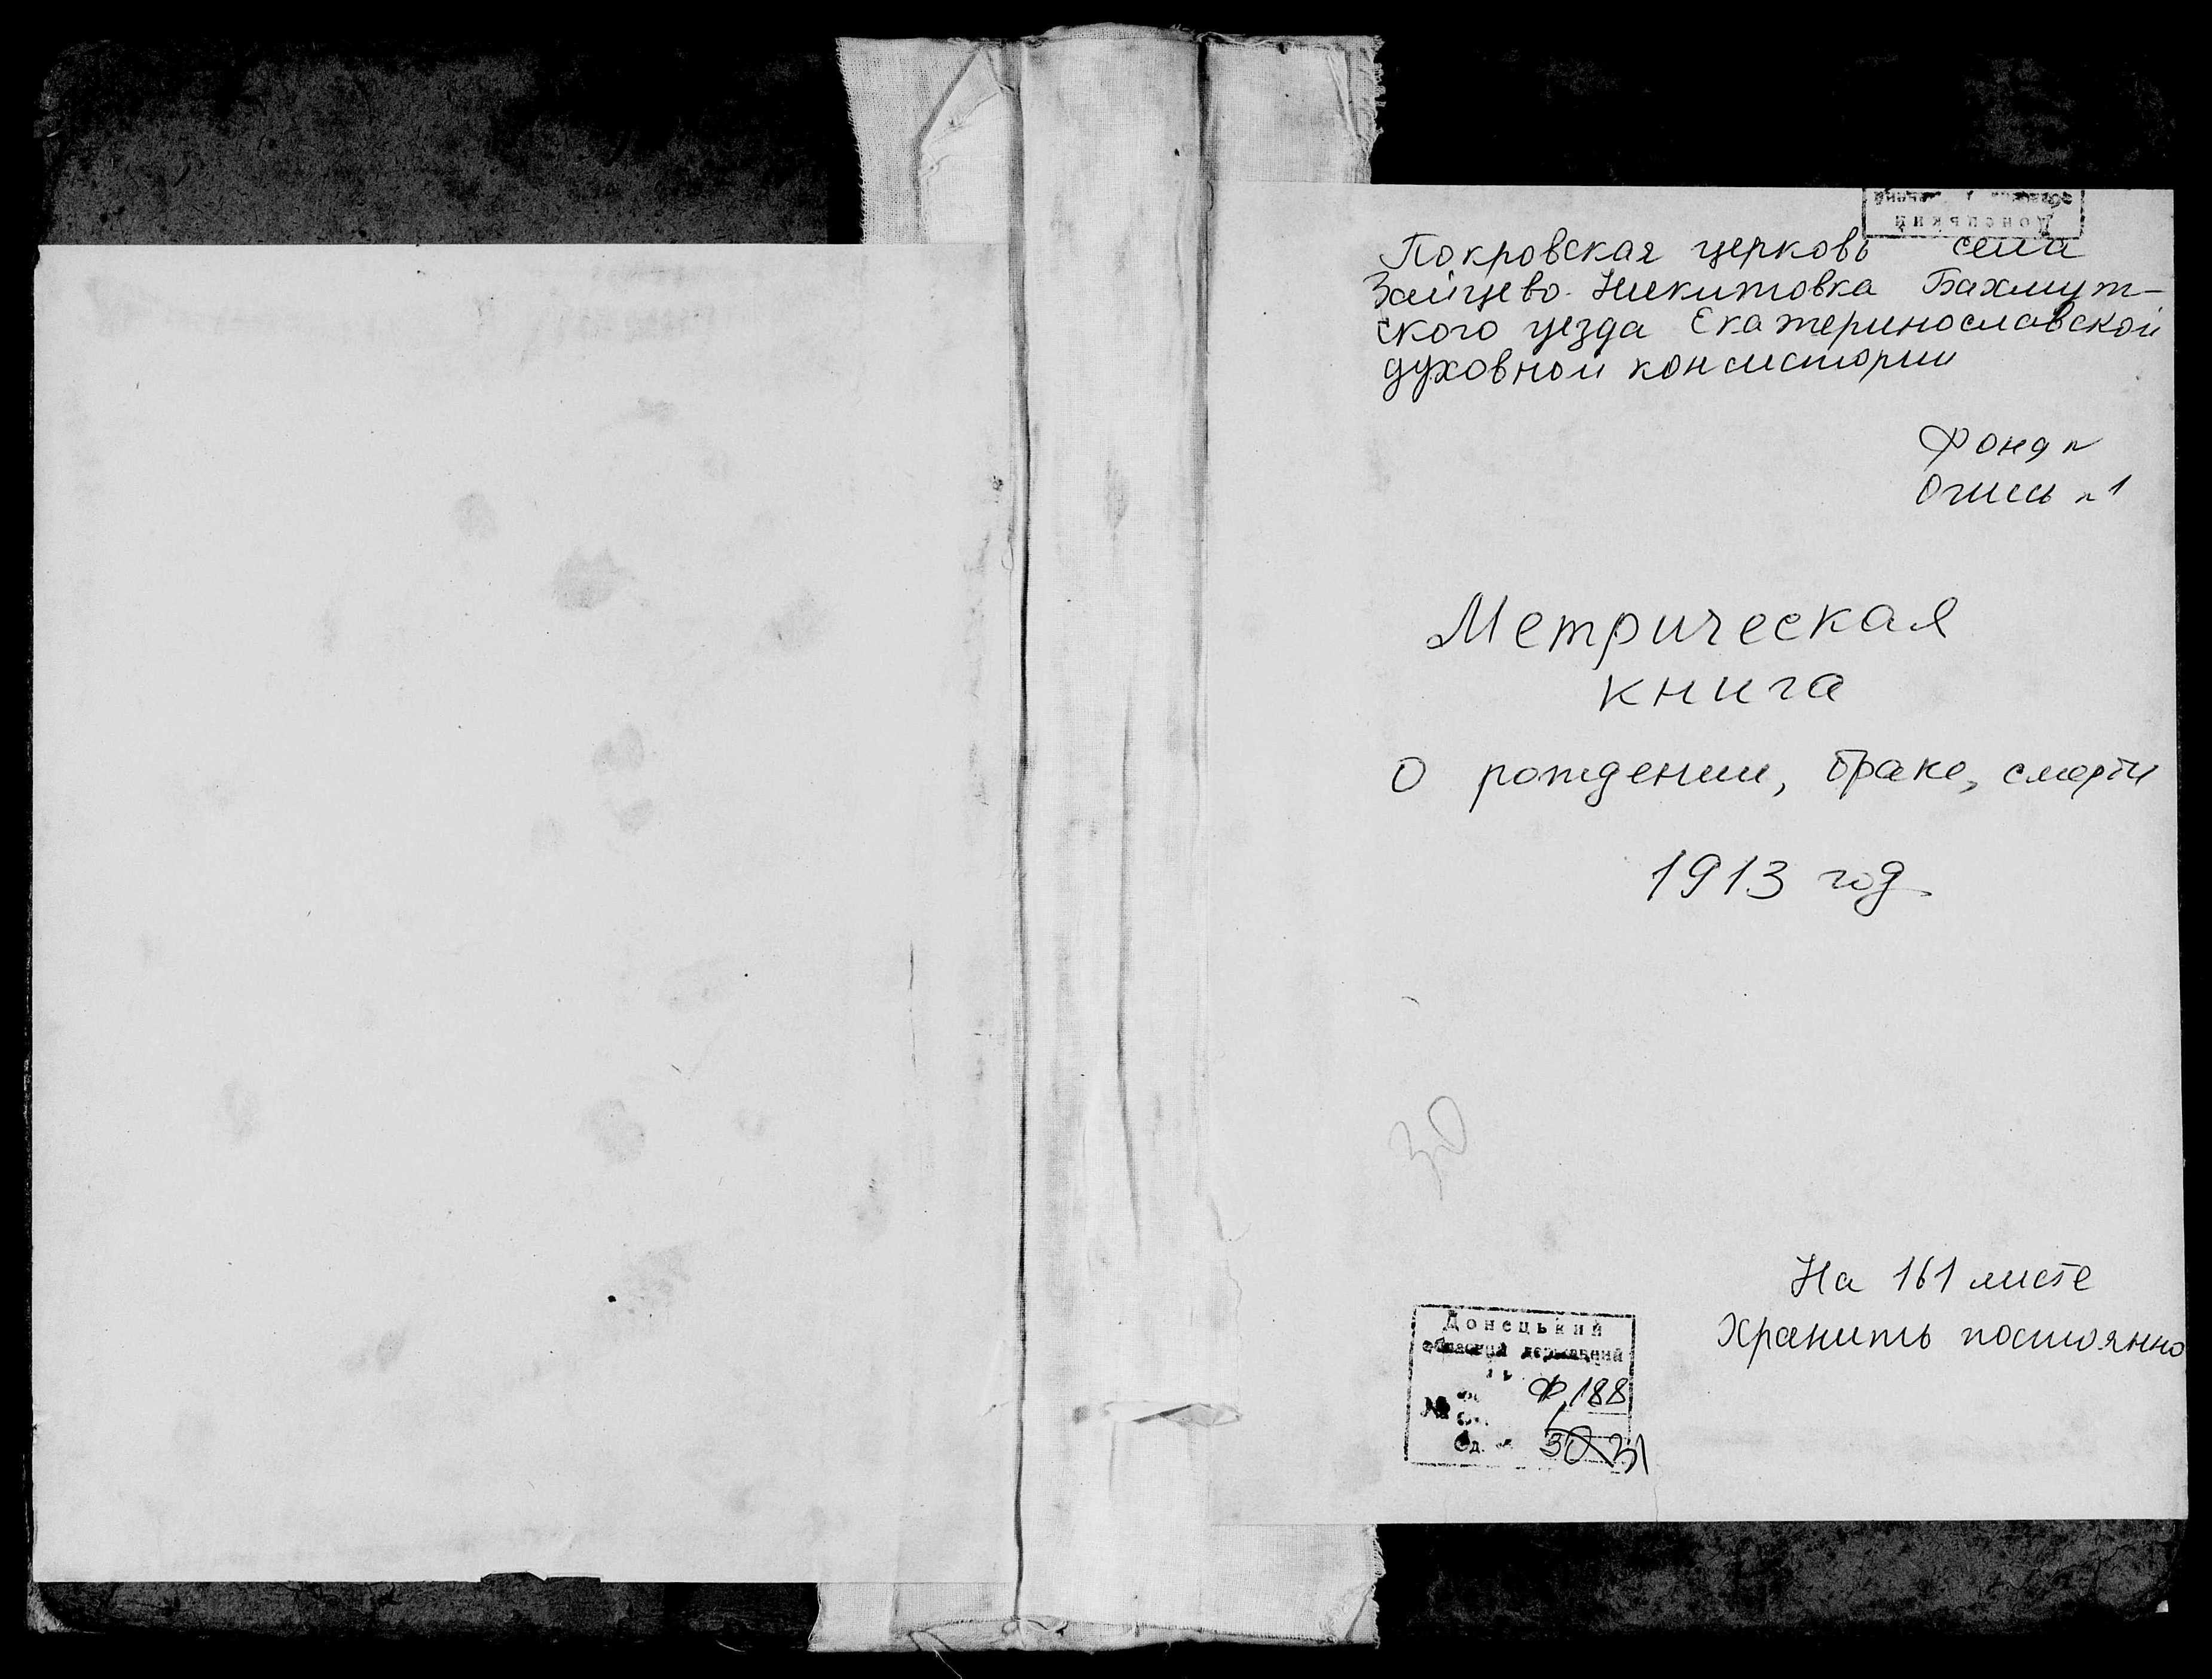 Донецький
Покровская церковь села
Зайцево-Никитовка Бахмут-
ского уезда Екатеринославской
духовной консистории
Фонд №
Опись №1
Метрическая
книга
О рождении, браке, смерти
1913 год
30
На 161 листе
Хранить постоянно
Донецький
обласний державний
№ Ф.188
Од. 30 31